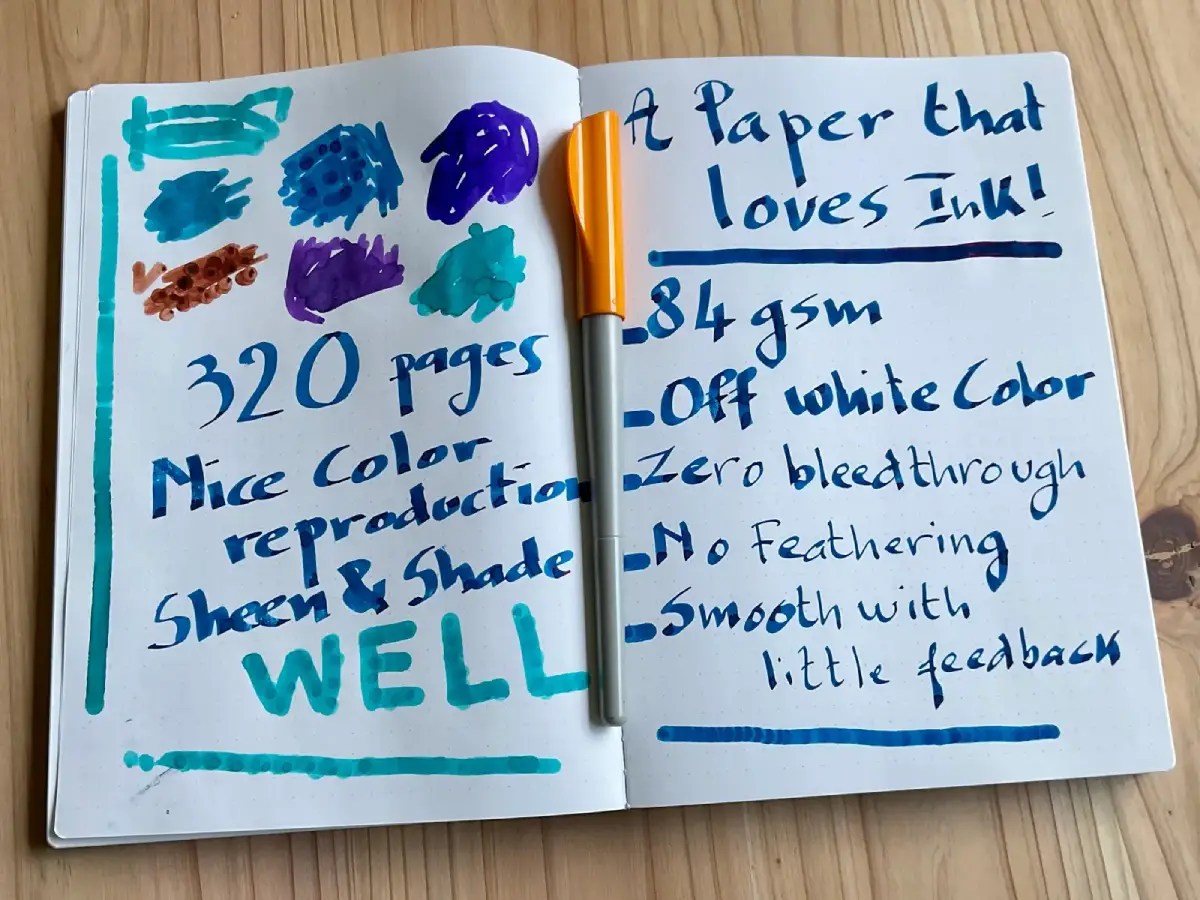 320 pages
Nice Color
reproduction
Sheen & Shade
WELL
A Paper that
loves Ink!
-84 gsm
-Off white Color
-Zero bleedthrough
-No Feathering
-Smooth with
little feedback